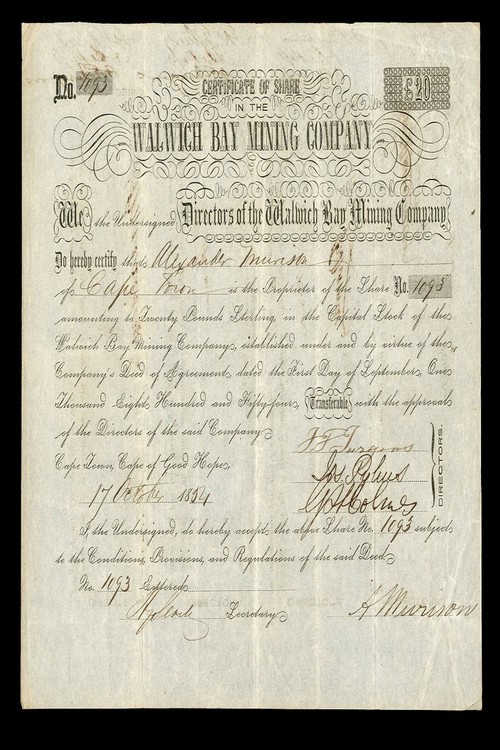 No. 1093
£20
CERTIFICATE OF SHARE
IN THE
WALWICH BAY MINING COMPANY
We the Undersigned Directors of the Walwich Bay Mining Company
Do hereby certify that Alexander Murison
of Cape Town is the Proprietor of the Share No. 1093
amounting to Twenty Pounds Sterling, in the Capital Stock of the
Walwich Bay Mining Company, established under and by virtue of the
Company's Deed of Agreement, dated the First Day of September, One
Thousand Eight Hundred and Fifty-four, Transferable with the approval
of the Directors of the said Company.
Cape Town, Cape of Good Hope,
17 October 1854
DIRECTORS.
I, the Undersigned, do hereby accept the above Share No. 1093 subject
to the Conditions, Provisions, and Regulations of the said Deed.
No. 1093 Entered
Secretary
A Murison